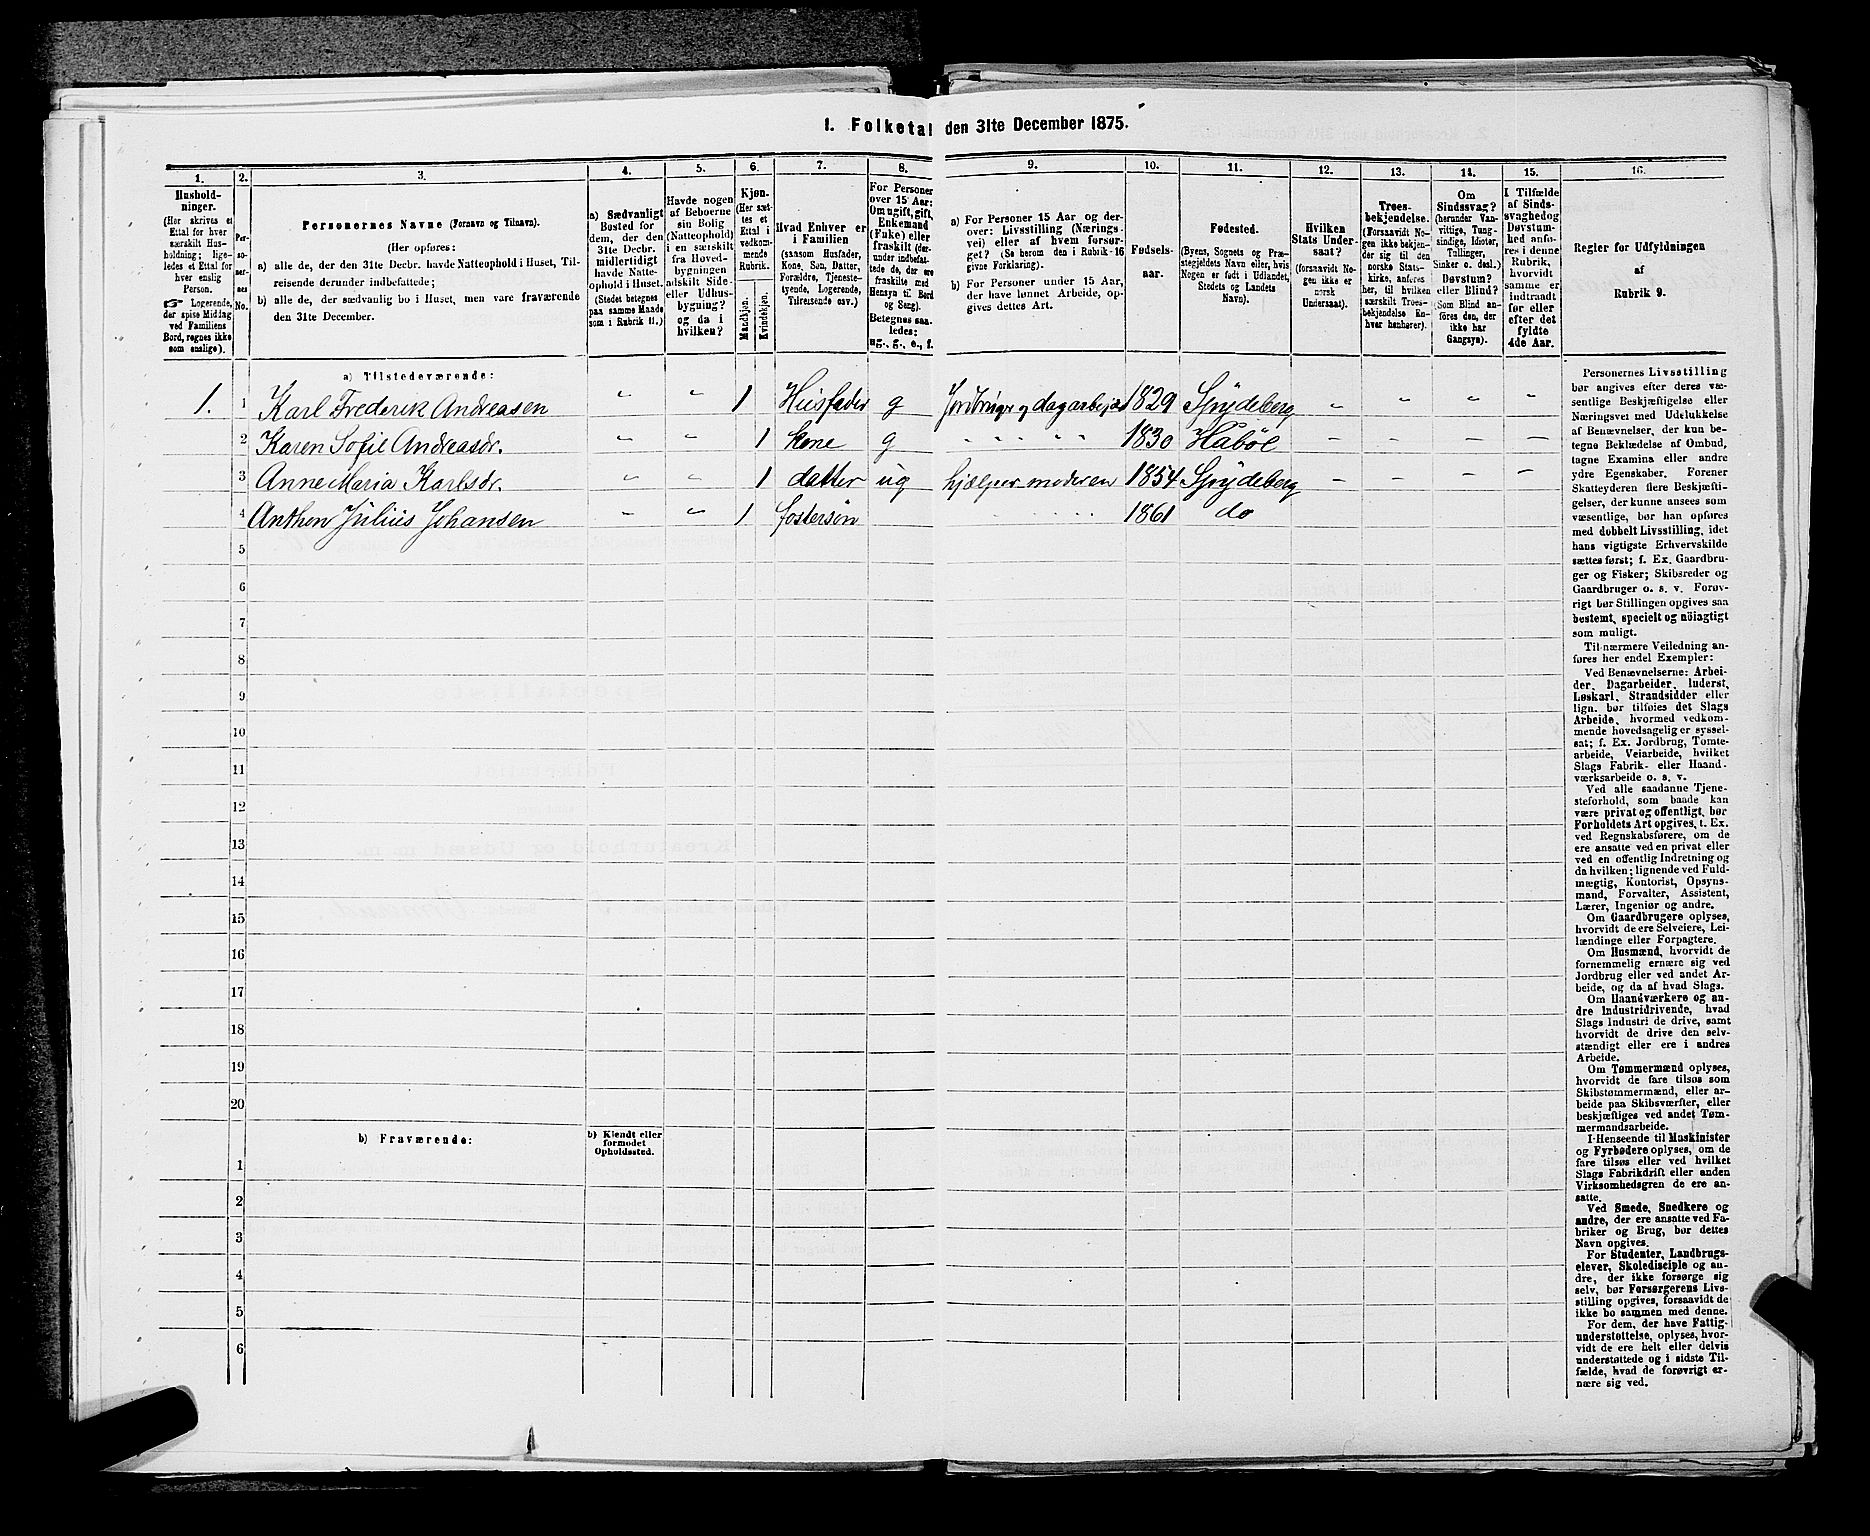 1. Folketal den 31te December 1875.
1.
Hushold-
ninger.
(Her skrives et
Ettal for hver
særskilt Hus-
holdning; lige-
ledes et Ettal for
hver enslig
Person.
☞ Logerende,
der spise Middag
ved Familiens
Bord, regnes ikke
som enslige).
2.
Per-
so-
ner-
nes
No.
3.
Personernes Navne (Fornavn og Tilnavn).
(Her opføres:
a) alle de, der den 31te Decbr. havde Natteophold i Huset, Til-
reisende derunder indbefattede;
b) alle de, der sædvanlig bo i Huset, men vare fraværende
den 31te December.
4.
a) Sædvanligt
Bosted for
dem, der den
31te Decbr.
midlertidigt
havde Natte-
ophold i Huset.
(Stedet betegnes
paa samme Maade
som i Rubrik 11.)
5.
Havde nogen
af Beboerne
sin Bolig
(Natteophold)
i en særskilt
fra Hoved-
bygningen
adskilt Side-
eller Udhus-
bygning?
og da i
hvilken?
6.
Kjøn.
(Her sæt-
tes et
Ettal i
vedkom-
mende
Rubrik.
Mandkjøn.
Kvindekjøn.
7.
Hvad Enhver er
i Familien
(saasom Husfader,
Kone, Søn, Datter,
Forældre, Tjeneste-
tyende, Logerende,
Tilreisende osv.)
8.
For Personer
over 15 Aar:
Om ugift, gift,
Enkemand
(Enke) eller
fraskilt (der-
under indbefat-
tede de, der ere
fraskilte med
Hensyn til Bord
og Seng).
Betegnes saa-
ledes:
ug., g., e., f.
9.
a) For Personer 15 Aar og der-
over: Livsstilling (Nærings-
vei) eller af hvem forsør-
get? (Se herom den i Rubrik 16
givne Forklaring).
b) For Personer under 15 Aar,
der have lønnet Arbeide, op-
gives dettes Art.
10.
Fødsels-
aar.
11.
Fødested.
(Byens, Sognets og Præ-
stegjeldets Navn eller, hvis
Nogen er født i Udlandet,
Stedets og Landets
Navn).
12.
Hvilken
Stats Under-
saat?
(forsaavidt No-
gen ikke er
norsk
Undersaat).
13.
Troes-
bekjendelse.
(Forsaavidt No-
gen ikke bekjen-
der sig til den
norske Stats-
kirke, anføres
her, til hvilken
særskilt Troes-
bekjendelse En-
hver henhører).
14.
Om
Sindssvag?
(herunder Van-
vittige, Tung-
sindige, Idioter,
Tullinger,
Sinker o. desl.)
Døvstum?
eller Blind?
(Som Blind an-
føres den, der
ikke har
Gangsyn).
15.
I Tilfælde
af Sinds-
svaghed og
Døvstum-
hed anfø-
res i denne
Rubrik,
hvorvidt
samme er
indtraadt
før eller
efter det
fyldte
4de Aar.
16.
Regler for Udfyldningen
af
Rubrik 9.
a) Tilstedeværende:
1. 1 Karl Frederik Andreasen " " 1 Husfader g Jordbruger og dagarbejder 1829 Spydeberg " " " "
2 Karen Sofie Andreasdr. " " 1 kone g " " " " 1830 Håbøl – – – –
3 Anne Maria Karlsdr. " " 1 datter ug hjælper moderen 1854 Spydeberg – – – –
4 Anthon Julius Johansen " " 1 fostersøn " " " " 1861 do
5
6
7
8
9
10
11
12
13
14
15
16
17
18
19
20
b) Fraværende:
b) Kjendt eller
formodet
Opholdssted.
1
2
3
4
5
6
Personernes Livsstilling
bør angives efter deres væ-
sentlige Beskjæftigelse eller
Næringsvei med Udelukkelse
af Benævnelser, der kun be-
tegne Beklædelse af Ombud,
tagne Examina eller andre
ydre Egenskaber. Forener
Skatteyderen flere Beskjæfti-
gelser, der kunne ansees som
væsentlige, bør han opføres
med dobbelt Livsstilling, idet
hans vigtigste Erhvervskilde
sættes først; f. Ex. Gaardbru-
ger og Fisker; Skibsreder og
Gaardbruger o. s. v. Forøv-
rigt bør Stillingen opgives saa
bestemt, specielt og nöiagtigt
som muligt.
Til nærmere Veiledning an-
føres her endel Exempler:
Ved Benævnelserne: Arbei-
der, Dagarbeider, Inderst,
Løskarl, Strandsidder eller
lign. bør tilføies det Slags
Arbeide, hvormed vedkom-
mende hovedsagelig er syssel-
sat; f. Ex. Jordbrug, Tomte-
arbeide, Veiarbeide, hvilket
Slags Fabrik- eller Haand-
værksarbeide o. s. v.
Ved alle saadanne Tjene-
steforhold, som baade kan
være privat og offentligt, bør
Forholdets Art opgives, t. Ex.
ved Regnskabsførere, om de
ere ansatte ved en privat eller
ved en offentlig Indretning og
da hvilken; lignende ved Fuld-
mægtig, Kontorist, Opsyns-
mand, Forvalter, Assistent,
Lærer, Ingeniør og andre.
Om Gaardbrugere oplyses,
hvorvidt de ere Selveiere, Lei-
lændinge eller Forpagtere.
Om Husmænd, hvorvidt de
fornemmelig ernære sig ved
Jordbrug eller ved andet Ar-
beide, og da af hvad Slags.
Om Haandværkere og an-
dre Industridrivende, hvad
Slags Industri de drive, samt
hvorvidt de drive den selv-
stændigt eller ere i andres
Arbeide.
Om Tømmermænd oplyses,
hvorvidt de fare tilsøs som
Skibstømmermænd, eller ar-
beide paa Skibsværfter, eller
beskjæftiges ved andet Tøm-
mermandsarbeide.
I Henseende til Maskinister
og Fyrbødere oplyses, om de
fare tilsøs eller ved hvilket
Slags Fabrikdrift eller anden
Virksomhedsgren de ere an-
satte.
Ved Smede, Snedkere og
andre, der ere ansatte ved Fa-
briker og Brug, bør dettes
Navn opgives.
For Studenter, Landbrugs-
elever, Skoledisciple og an-
dre, der ikke forsørge sig
selv, bør Forsørgerens Livs-
stilling opgives, forsaavidt de
ikke bo sammen med denne.
For dem, der have Fattig-
understøttelse, oplyses, hvor-
vidt de ere helt eller delvis
understøttede og i sidste Til-
fælde, hvad de forøvrigt er-
nære sig ved.